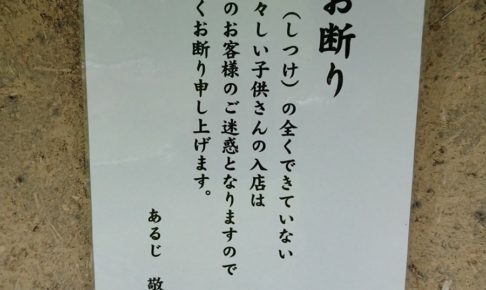 お断り
（しつけ）の全くできていない
々しい子供さんの入店は
のお客様のご迷惑となりますので
くお断り申し上げます。
あるじ 敬